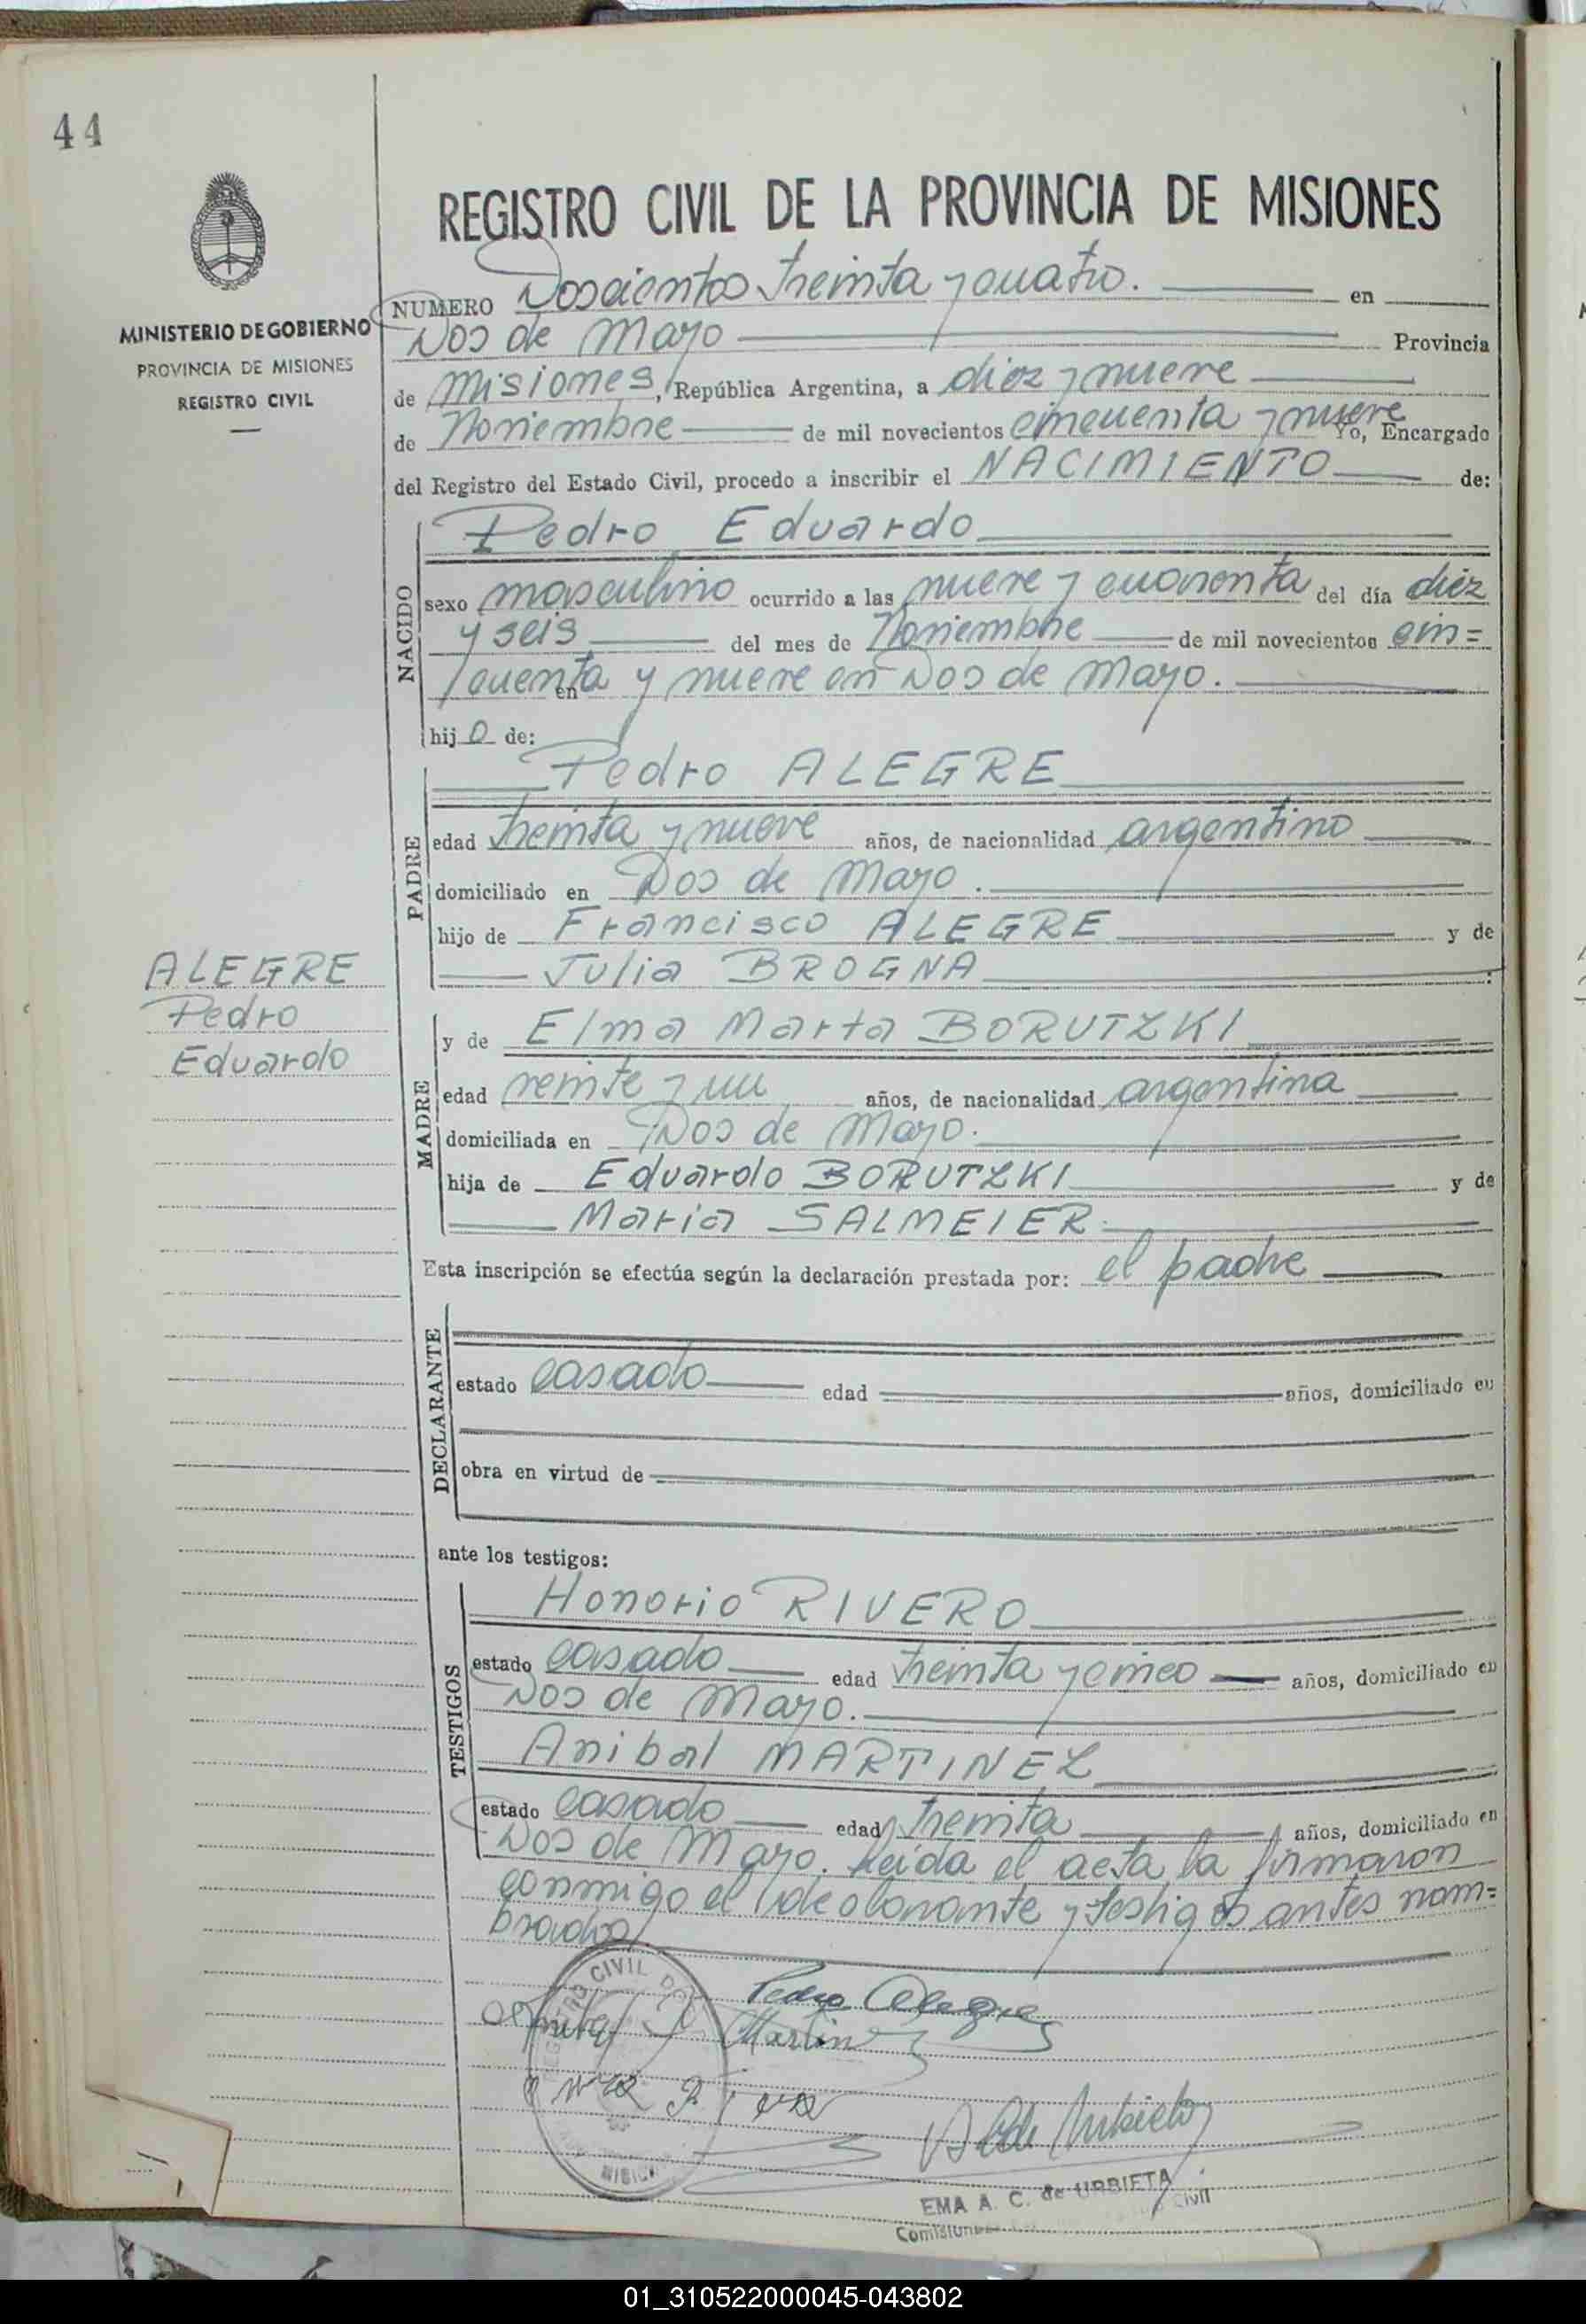 44
REGISTRO CIVIL DE LA PROVINCIA DE MISIONES
MINISTERIO DE GOBIERNO
PROVINCIA DE MISIONES
REGISTRO CIVIL
NUMERO Doscientos treinta y cuatro. en
Dos de Mayo Provincia
de Misiones, República Argentina, a diez y nueve
de Noviembre de mil novecientos cincuenta y nueve Yo, Encargado
del Registro del Estado Civil, procedo a inscribir el NACIMIENTO de:
NACIDO
Pedro Eduardo
sexo masculino ocurrido a las nueve y cuarenta del día diez
y seis del mes de Noviembre de mil novecientos cin=
cuenta y nueve en Dos de Mayo.
en
hijo de:
PADRE
Pedro ALEGRE
edad treinta y nueve años, de nacionalidad argentino
domiciliado en Dos de Mayo.
hijo de Francisco ALEGRE y de
Julia BROGNA
ALEGRE
Pedro
Eduardo
MADRE
y de Elma Marta BORUTZKI
edad veinte y un años, de nacionalidad argentina
domiciliada en Dos de Mayo.
hija de Eduardo BORUTZKI y de
Maria SALMEIER.
Esta inscripción se efectúa según la declaración prestada por: el padre
DECLARANTE
estado casado edad años, domiciliado en
obra en virtud de
ante los testigos:
TESTIGOS
Honorio RIVERO
estado casado edad treinta y cinco años, domiciliado en
Dos de Mayo.
Anibal MARTINEZ
estado casado edad treinta años, domiciliado en
Dos de Mayo. Leida el acta, la firmaron
conmigo el declarante y testigos antes nom=
brados
REGISTRO CIVIL
Pedro Alegre
Martinez
EMA A. C. de URBIETA
Civil
01_310522000045-043802